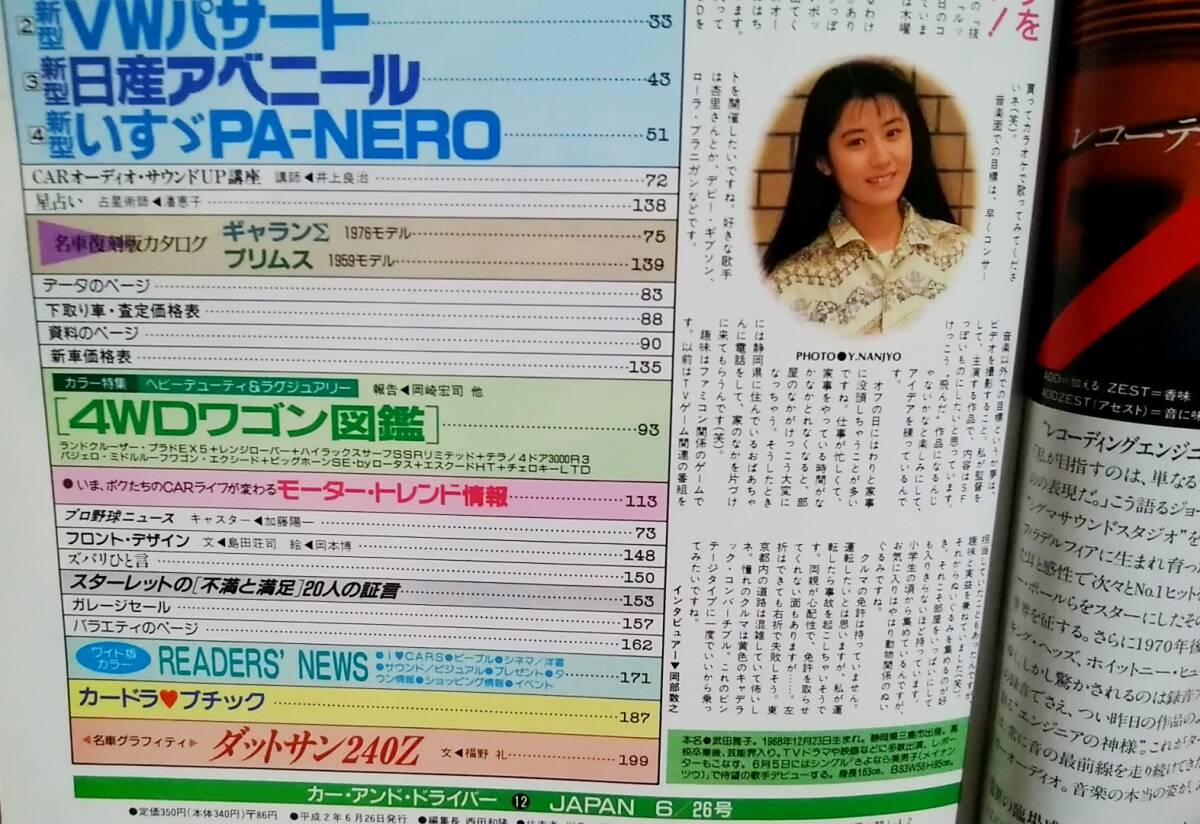 ②新型VWパサート 33
③新型日産アベニール 43
④新型いすゞPA-NERO 51
CARオーディオ・サウンドUP講座 講師◀井上良治 72
星占い 占星術師◀湊恵子 138
名車復刻版カタログ ギャランΣ 1976モデル 75
プリムス 1959モデル 139
データのページ 83
下取り車・査定価格表 88
資料のページ 90
新車価格表 135
カラー特集 ヘビーデューティ&ラグジュアリー 報告◀岡崎宏司 他
[4WDワゴン図鑑] 93
ランドクルーザー・プラドEX5+レンジローバー+ハイラックスサーフSSRリミテッド+テラノ4ドア3000R3
パジェロ・ミドルルーフワゴン・エクシード+ビッグホーンSE・byロータス+エスクードHT+チェロキーLTD
●いま、ボクたちのCARライフが変わる モーター・トレンド情報 113
プロ野球ニュース キャスター◀加藤陽一 73
フロント・デザイン 文◀島田荘司 絵◀岡本博 148
ズバリひと言 150
スターレットの[不満と満足]20人の証言 153
ガレージセール 157
バラエティのページ 162
ワイド版カラー READERS' NEWS ●I♥CARS●ピープル●シネマ/洋書
●サウンド/ビジュアル●プレゼント●タ
ウン情報●ショッピング情報●イベント 171
カードラ♥プチック 187
◀名車グラフィティ▶ ダットサン240Z 文◀福野 礼一 199
カー・アンド・ドライバー ⑫ JAPAN 6/26号
●定価350円(本体340円)〒86円 ●平成2年6月26日発行 ●編集長 西田和隆
買ってカラオケで歌ってみてくださ
いネ(笑)。
音楽面での目標は、早くコンサー
トを開催したいですね。好きな歌手
は杏里さんとか、デビー・ギブソン、
ローラ・ブラニガンなどです。
PHOTO●Y.NANJYO
音楽以外での目標というか夢は、
ビデオを撮影すること。私が監督を
して、主演する作品で、内容はSF
っぽいものにしたいと思っています。
けっこう、飛んだ、作品になるんじ
ゃないかなと楽しみにして、
アイデアを練っているんで
す。
オフの日にはわりと家事
に没頭しちゃうことが多い
ですね。仕事が忙しくて、
家事をやっている時間がな
かなかとれなくなると、部
屋のなかがけっこう大変に
なっちゃう。そうしたとき
には静岡県に住んでいるおばあちゃ
んに電話をして、家のなかを片づけ
に来てもらうんです(笑)。
趣味はファミコン関係のゲームで
す。以前はTVゲーム関連の番組を
担当していたこともあったんですが、
趣味と実益を兼ねていました(笑)。
それからぬいぐるみを集めるのが好
き。それこそ部屋をいっぱいにして
も入りきらないほど持っています。
小学生の頃から集めているんですが、
お気に入りはやはり動物関係のぬい
ぐるみですね。
クルマの免許は持っていません。
運転したいとは思いますが、私が運
転したら事故を起こしちゃいそうで
す。両親が心配性で、免許を取らせ
てくれない面もありますが……。左
折はできても右折で失敗しそう。東
京都内の道路は混雑していて怖いし
ネ。憧れのクルマは黄色のキャデラ
ック・コンバーチブル。これのビン
テージタイプに一度でいいから乗っ
てみたいですね。
インタビュアー▼岡部数之
本名●武田雅子。1968年12月23日生まれ。静岡県三島市出身。高
校卒業後、芸能界入り。TVドラマや映画などに多数出演、レポー
ターもこなす。6月5日にはシングル『さよなら美男子(メイナン
ツウ)』で待望の歌手デビューする。身長163cm、B83W58H85cm。
レコーディ
ADD=加える ZEST=香味
ADDZEST(アゼスト)=音に味
“レコーディングエンジニ
「私が目指すのは、単なる
のの表現だ。」こう語るジョー
シグマサウンドスタジオ”を
フィラデルフィアに生まれ育った
た耳と感性で次々とNo.1ヒット
ー・ポールらをスターにしたその
世界を征する。さらに1970年後
キング・ヘッズ、ホイットニー・ヒュ